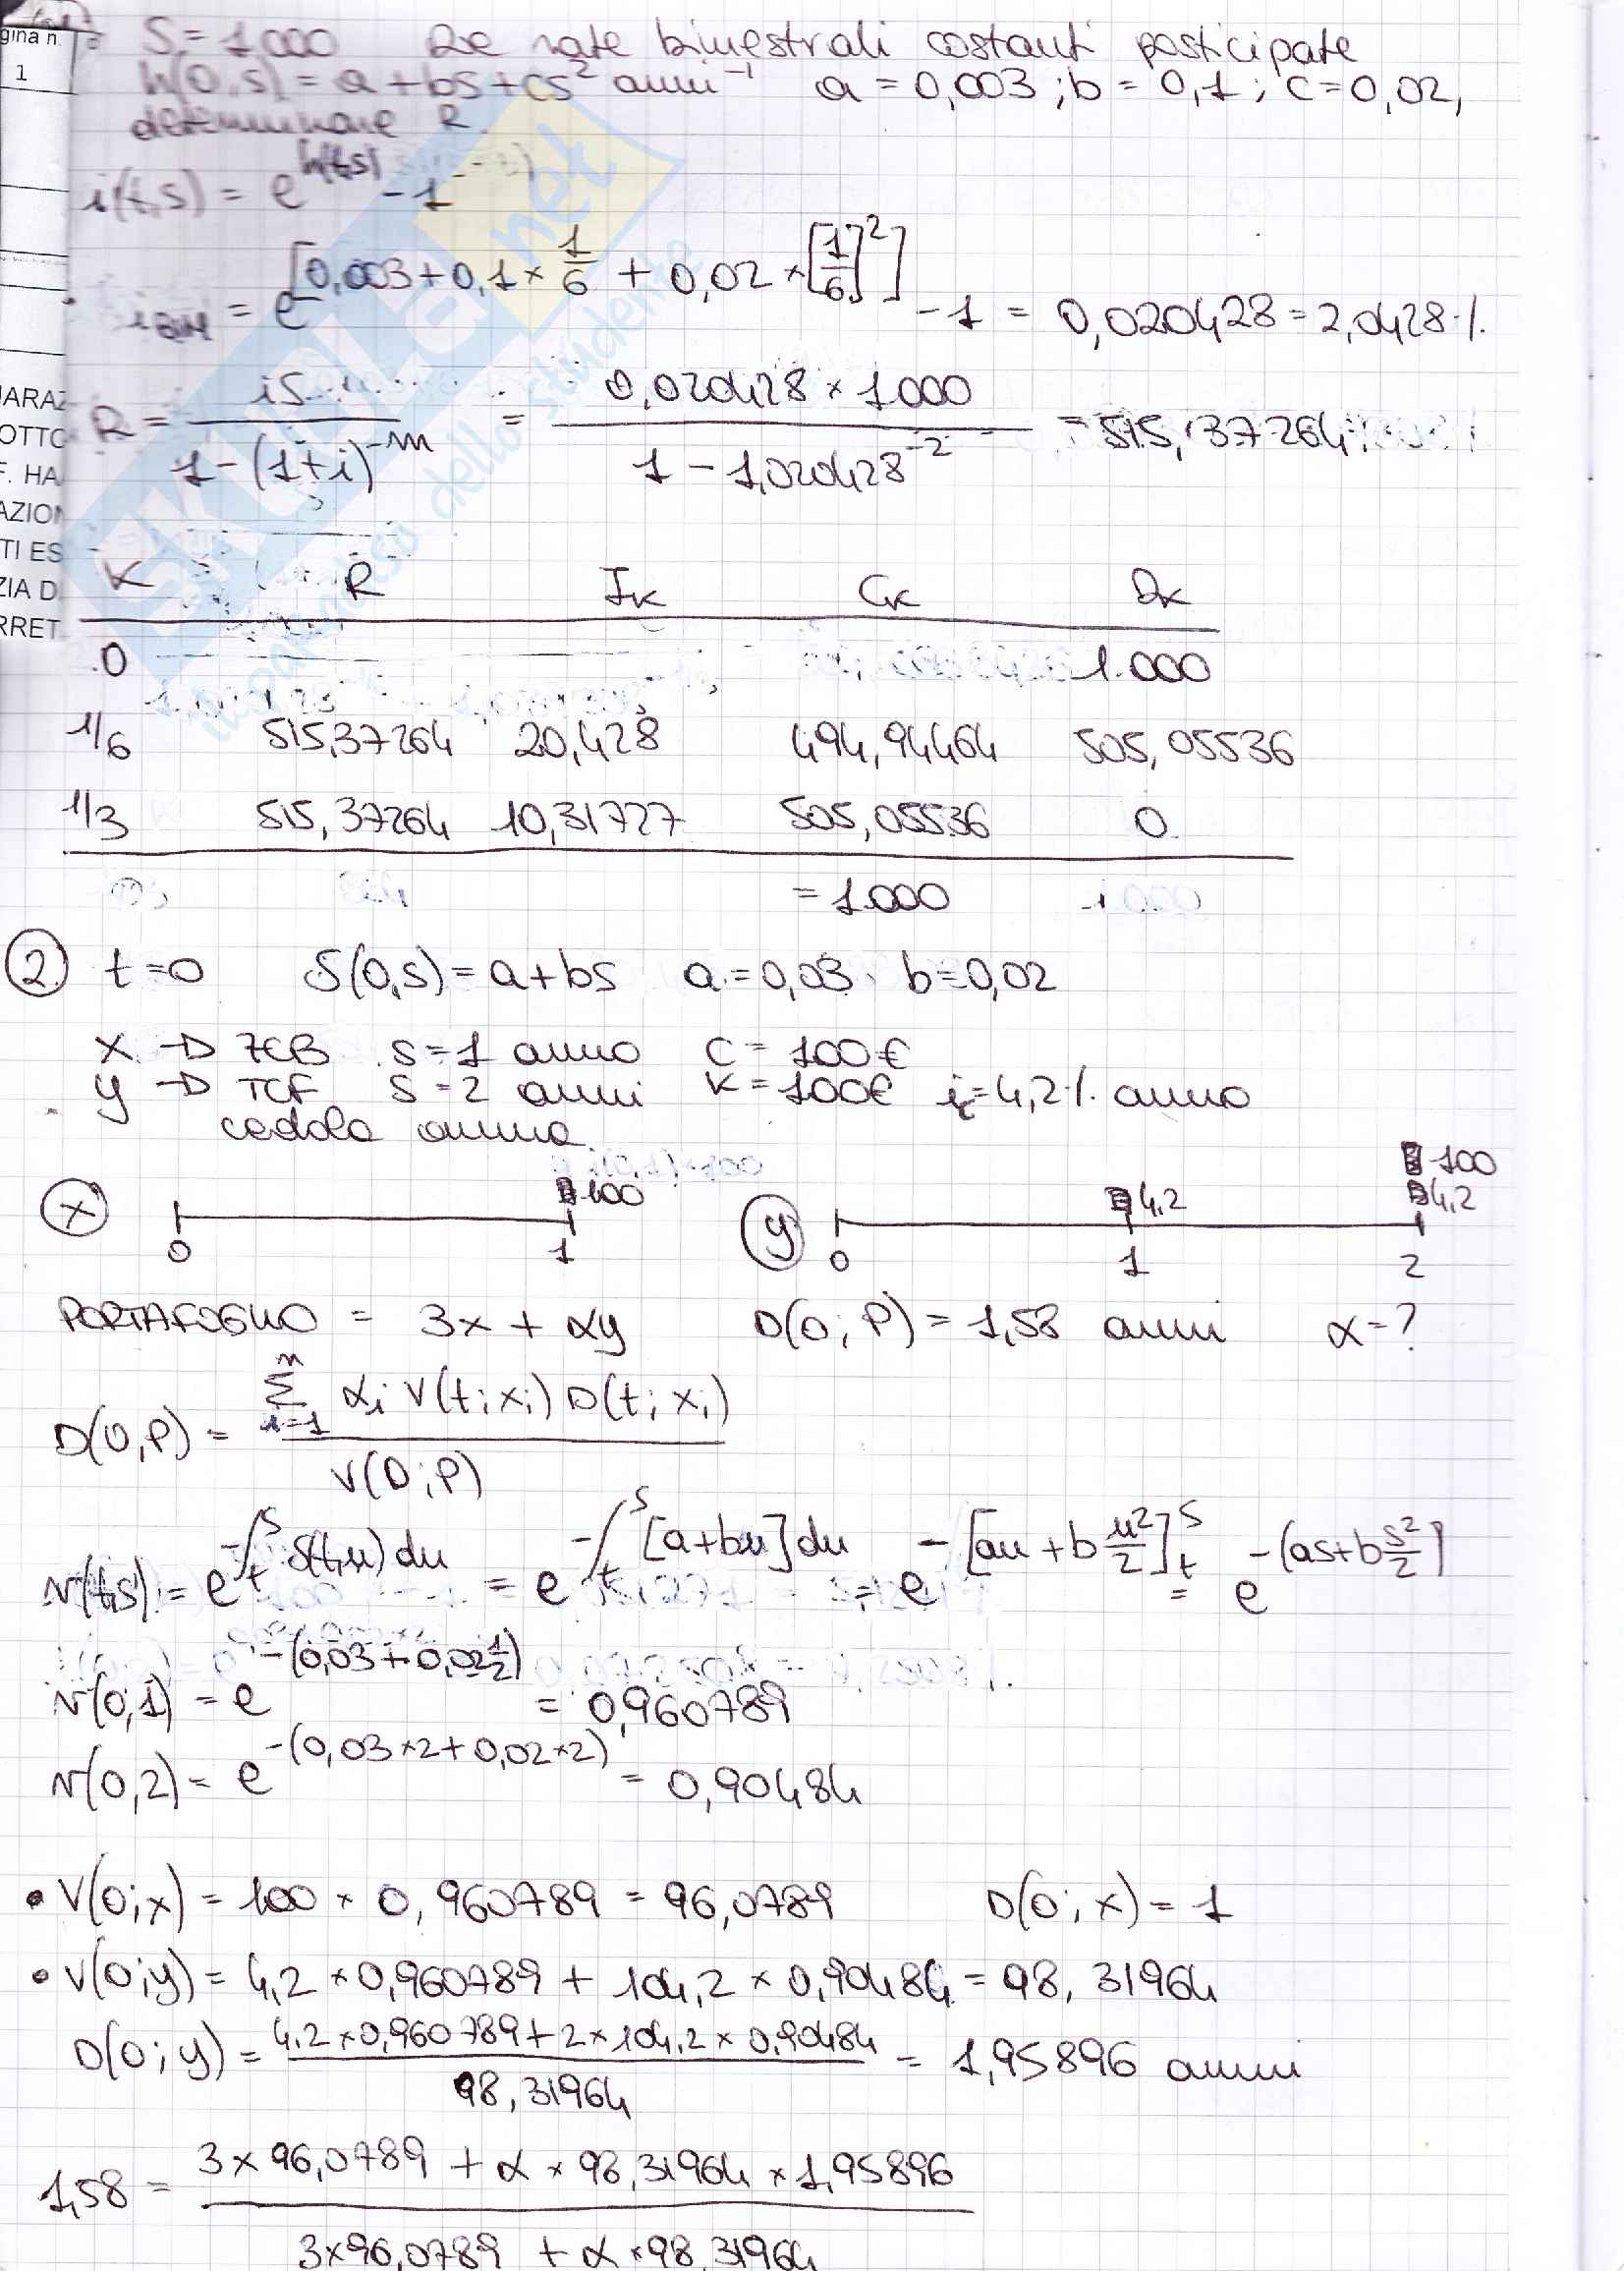 gina n.
1
S = 1000 Due rate bimestrali costanti posticipate
h(0,s) = a+bs+cs² anni⁻¹ a = 0,003 ; b = 0,1 ; c = 0,02,
determinare R.
i(t,s) = e^h(t,s) - 1
i BIM = e^[0,003 + 0,1 × 1/6 + 0,02 × [1/6]²] - 1 = 0,020428 = 2,0428 %
R = iS / 1-(1+i)^-m = 0,020428 × 1000 / 1 - 1,020428^-2 = 515,37264
K R Ik Ck Dk
0 1.000
1/6 515,37264 20,428 494,94464 505,05536
1/3 515,37264 10,31727 505,05536 0
= 1.000
2. t=0 δ(0,s) = a+bs a = 0,03 b = 0,02
X → ZCB s = 1 anno C = 100€
y → TCF s = 2 anni K = 100€ i = 4,2% anno
cedola annua
x 0 1 100
y 0 1 4,2 2 4,2 100
PORTAFOGLIO = 3x + αy D(0; P) = 1,58 anni α = ?
D(0,P) = Σ i=1 n αi V(t; xi) D(t; xi) / V(0; P)
v(t,s) = e^-∫t^s δ(t,u) du = e^-∫t^s [a+bu] du = e^-[au + b u²/2]t^s = e^-(as+b s²/2)
v(0,1) = e^-(0,03 + 0,02 1/2) = 0,960789
v(0,2) = e^-(0,03×2 + 0,02×2) = 0,90484
• V(0;x) = 100 × 0,960789 = 96,0789 D(0; x) = 1
• V(0;y) = 4,2 × 0,960789 + 104,2 × 0,90484 = 98,31964
D(0; y) = 4,2 × 0,960789 + 2 × 104,2 × 0,90484 / 98,31964 = 1,95896 anni
1,58 = 3 × 96,0789 + α × 98,31964 × 1,95896 / 3×96,0789 + α × 98,31964
SKUOLA.net